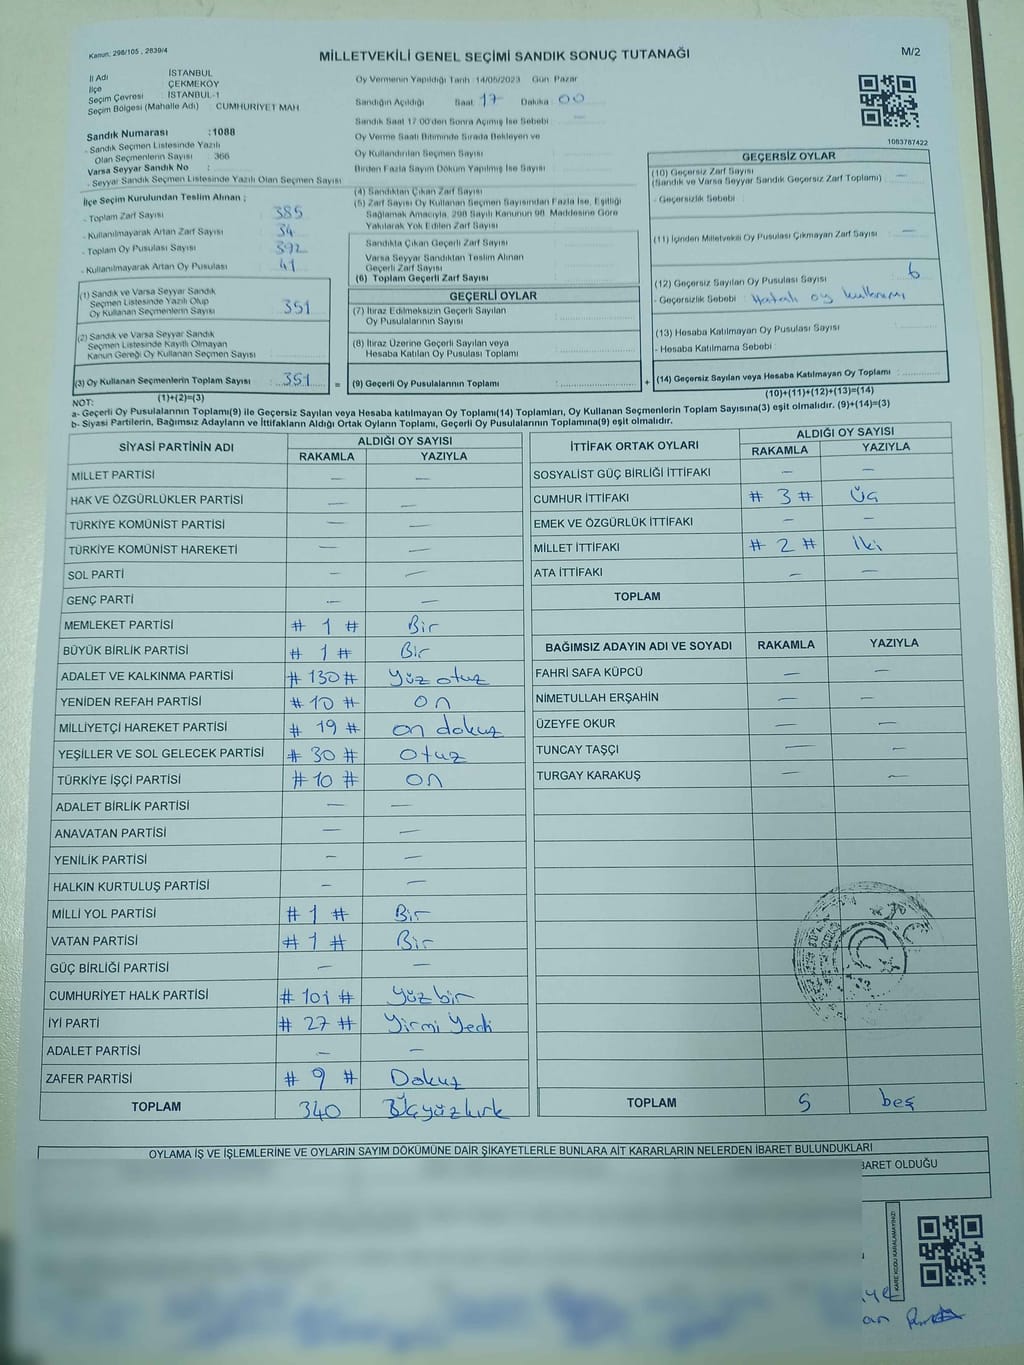 Kanun: 298/105 , 2839/4
MİLLETVEKİLİ GENEL SEÇİMİ SANDIK SONUÇ TUTANAĞI
M/2
İl Adı İSTANBUL
İlçe ÇEKMEKÖY
Seçim Çevresi : İSTANBUL-1
Seçim Bölgesi (Mahalle Adı) : CUMHURİYET MAH
Sandık Numarası : 1088
- Sandık Seçmen Listesinde Yazılı
Olan Seçmenlerin Sayısı : 366
Varsa Seyyar Sandık No :
- Seyyar Sandık Seçmen Listesinde Yazılı Olan Seçmen Sayısı
Oy Vermenin Yapıldığı Tarih : 14/05/2023 Gün Pazar
Sandığın Açıldığı Saat 17 Dakika 00
Sandık Saat 17:00'den Sonra Açmış İse Sebebi : —
Oy Verme Saati Bitiminde Sırada Bekleyen ve
Oy Kullandırılan Seçmen Sayısı
Birden Fazla Sayım Döküm Yapılmış İse Sayısı
1083787422
İlçe Seçim Kurulundan Teslim Alınan ;
- Toplam Zarf Sayısı : 385
- Kullanılmayarak Artan Zarf Sayısı : 34
- Toplam Oy Pusulası Sayısı : 392
- Kullanılmayarak Artan Oy Pusulası : 41
(1) Sandık ve Varsa Seyyar Sandık
Seçmen Listesinde Yazılı Olup
Oy Kullanan Seçmenlerin Sayısı : 351
(2) Sandık ve Varsa Seyyar Sandık
Seçmen Listesinde Kayıtlı Olmayan
Kanun Gereği Oy Kullanan Seçmen Sayısı
(3) Oy Kullanan Seçmenlerin Toplam Sayısı : 351 =
(1)+(2)=(3)
(4) Sandıktan Çıkan Zarf Sayısı
(5) Zarf Sayısı Oy Kullanan Seçmen Sayısından Fazla İse, Eşitliği
Sağlamak Amacıyla, 298 Sayılı Kanunun 98. Maddesine Göre
Yakılarak Yok Edilen Zarf Sayısı
Sandıkta Çıkan Geçerli Zarf Sayısı
Varsa Seyyar Sandıktan Teslim Alınan
Geçerli Zarf Sayısı
(6) Toplam Geçerli Zarf Sayısı
GEÇERLİ OYLAR
(7) İtiraz Edilmeksizin Geçerli Sayılan
Oy Pusulalarının Sayısı
(8) İtiraz Üzerine Geçerli Sayılan veya
Hesaba Katılan Oy Pusulası Toplamı
(9) Geçerli Oy Pusulalarının Toplamı : +
GEÇERSİZ OYLAR
(10) Geçersiz Zarf Sayısı
(Sandık ve Varsa Seyyar Sandık Geçersiz Zarf Toplamı) : —
- Geçersizlik Sebebi :
(11) İçinden Milletvekili Oy Pusulası Çıkmayan Zarf Sayısı —
(12) Geçersiz Sayılan Oy Pusulası Sayısı : 6
- Geçersizlik Sebebi : Hatalı oy kullanımı
(13) Hesaba Katılmayan Oy Pusulası Sayısı
- Hesaba Katılmama Sebebi :
(14) Geçersiz Sayılan veya Hesaba Katılmayan Oy Toplamı :
(10)+(11)+(12)+(13)=(14)
NOT:
a- Geçerli Oy Pusulalarının Toplamı(9) ile Geçersiz Sayılan veya Hesaba katılmayan Oy Toplamı(14) Toplamları, Oy Kullanan Seçmenlerin Toplam Sayısına(3) eşit olmalıdır. (9)+(14)=(3)
b- Siyasi Partilerin, Bağımsız Adayların ve İttifakların Aldığı Ortak Oyların Toplamı, Geçerli Oy Pusulalarının Toplamına(9) eşit olmalıdır.
SİYASİ PARTİNİN ADI ALDIĞI OY SAYISI
RAKAMLA YAZIYLA
MİLLET PARTİSİ — —
HAK VE ÖZGÜRLÜKLER PARTİSİ — —
TÜRKİYE KOMÜNİST PARTİSİ — —
TÜRKİYE KOMÜNİST HAREKETİ — —
SOL PARTİ — —
GENÇ PARTİ — —
MEMLEKET PARTİSİ # 1 # Bir
BÜYÜK BİRLİK PARTİSİ # 1 # Bir
ADALET VE KALKINMA PARTİSİ # 130 # Yüz otuz
YENİDEN REFAH PARTİSİ # 10 # on
MİLLİYETÇİ HAREKET PARTİSİ # 19 # on dokuz
YEŞİLLER VE SOL GELECEK PARTİSİ # 30 # otuz
TÜRKİYE İŞÇİ PARTİSİ # 10 # on
ADALET BİRLİK PARTİSİ — —
ANAVATAN PARTİSİ — —
YENİLİK PARTİSİ — —
HALKIN KURTULUŞ PARTİSİ — —
MİLLİ YOL PARTİSİ # 1 # Bir
VATAN PARTİSİ # 1 # Bir
GÜÇ BİRLİĞİ PARTİSİ — —
CUMHURİYET HALK PARTİSİ # 101 # Yüzbir
İYİ PARTİ # 27 # Yirmi Yedi
ADALET PARTİSİ — —
ZAFER PARTİSİ # 9 # Dokuz
TOPLAM 340 Üçyüzkırk
İTTİFAK ORTAK OYLARI ALDIĞI OY SAYISI
RAKAMLA YAZIYLA
SOSYALİST GÜÇ BİRLİĞİ İTTİFAKI — —
CUMHUR İTTİFAKI # 3 # Üç
EMEK VE ÖZGÜRLÜK İTTİFAKI — —
MİLLET İTTİFAKI # 2 # İki
ATA İTTİFAKI — —
TOPLAM
BAĞIMSIZ ADAYIN ADI VE SOYADI RAKAMLA YAZIYLA
FAHRİ SAFA KÜPCÜ — —
NİMETULLAH ERŞAHİN — —
ÜZEYFE OKUR — —
TUNCAY TAŞÇI — —
TURGAY KARAKUŞ — —
TOPLAM 5 beş
OYLAMA İŞ VE İŞLEMLERİNE VE OYLARIN SAYIM DÖKÜMÜNE DAİR ŞİKAYETLERLE BUNLARA AİT KARARLARIN NELERDEN İBARET BULUNDUKLARI
BARET OLDUĞU
KARE KODU KARALAMAYINIZ!